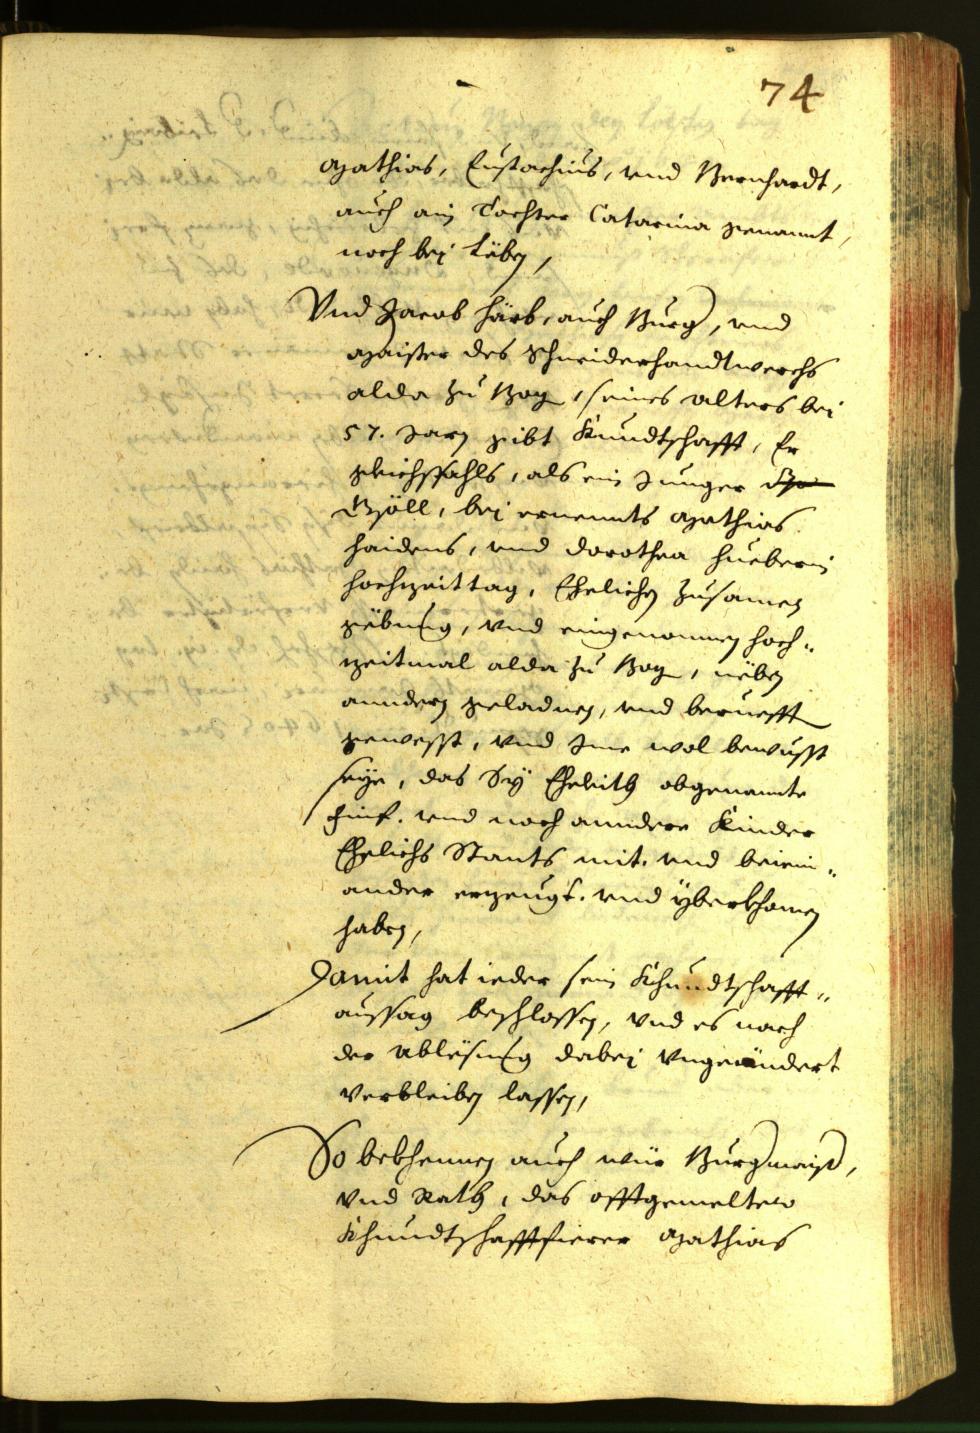 74
Mathias, Eustachius, vnd Bernhardt,
auch ain Tochter Catarina genannt,
noch bej Läben,
Vnd Jacob Härb, auch Burg, vnd
Maister des Schneiderhandtwerchs
alda zu Bozn, seines alters bej
57. Jarn gibt Kundtschafft, Er
gleichsfahls, als ein Junger
Gsöll, bej ernennts Mathias
Haidens, vnd Dorothea Hueberin
Hochzeittag, Ehelichen zusamen
gëbung, vnd eingenomnen Hoch„
zeitmal alda zu Bozn, nëben
anndern geladnen, vnd beruefft
gewesst, vnd Ime wol bewusst
seye, das Sÿ Eheleith obgenannte
fünf. vnd noch anndere Kinder
Ehelichs Stants mit. vnd beiein„
ander erzeugt. vnd yberkhomen
haben,
Damit hat ieder sein Khundtschafft„
aussag beschlossen, vnd es nach
der ablësung dabej vngeändert
verbleiben lassen,
So bekhennen auch wür Burgmaist,
vnd Rath, das offtgemelter
Khundtschafftfierer Mathias